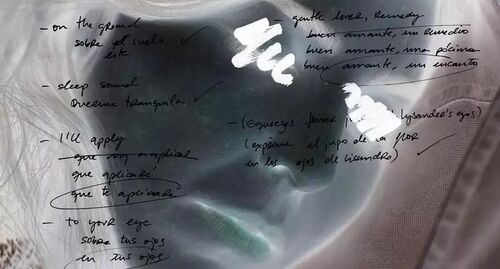 - on the ground
sobre el suelo
este
- sleep sound
Duerme tranquila
- I'll apply
que voy a aplicar
que aplicaré
que te aplicaré
- to your eye
sobre tus ojos
en tus ojos
- gentle lover, remedy
buen amante, un remedio
buen amante, una pócima
buen amante, un encanto
- (Squeezes flower Lysander's eyes)
(exprime el jugo de la flor
en los ojos de Lisandro)